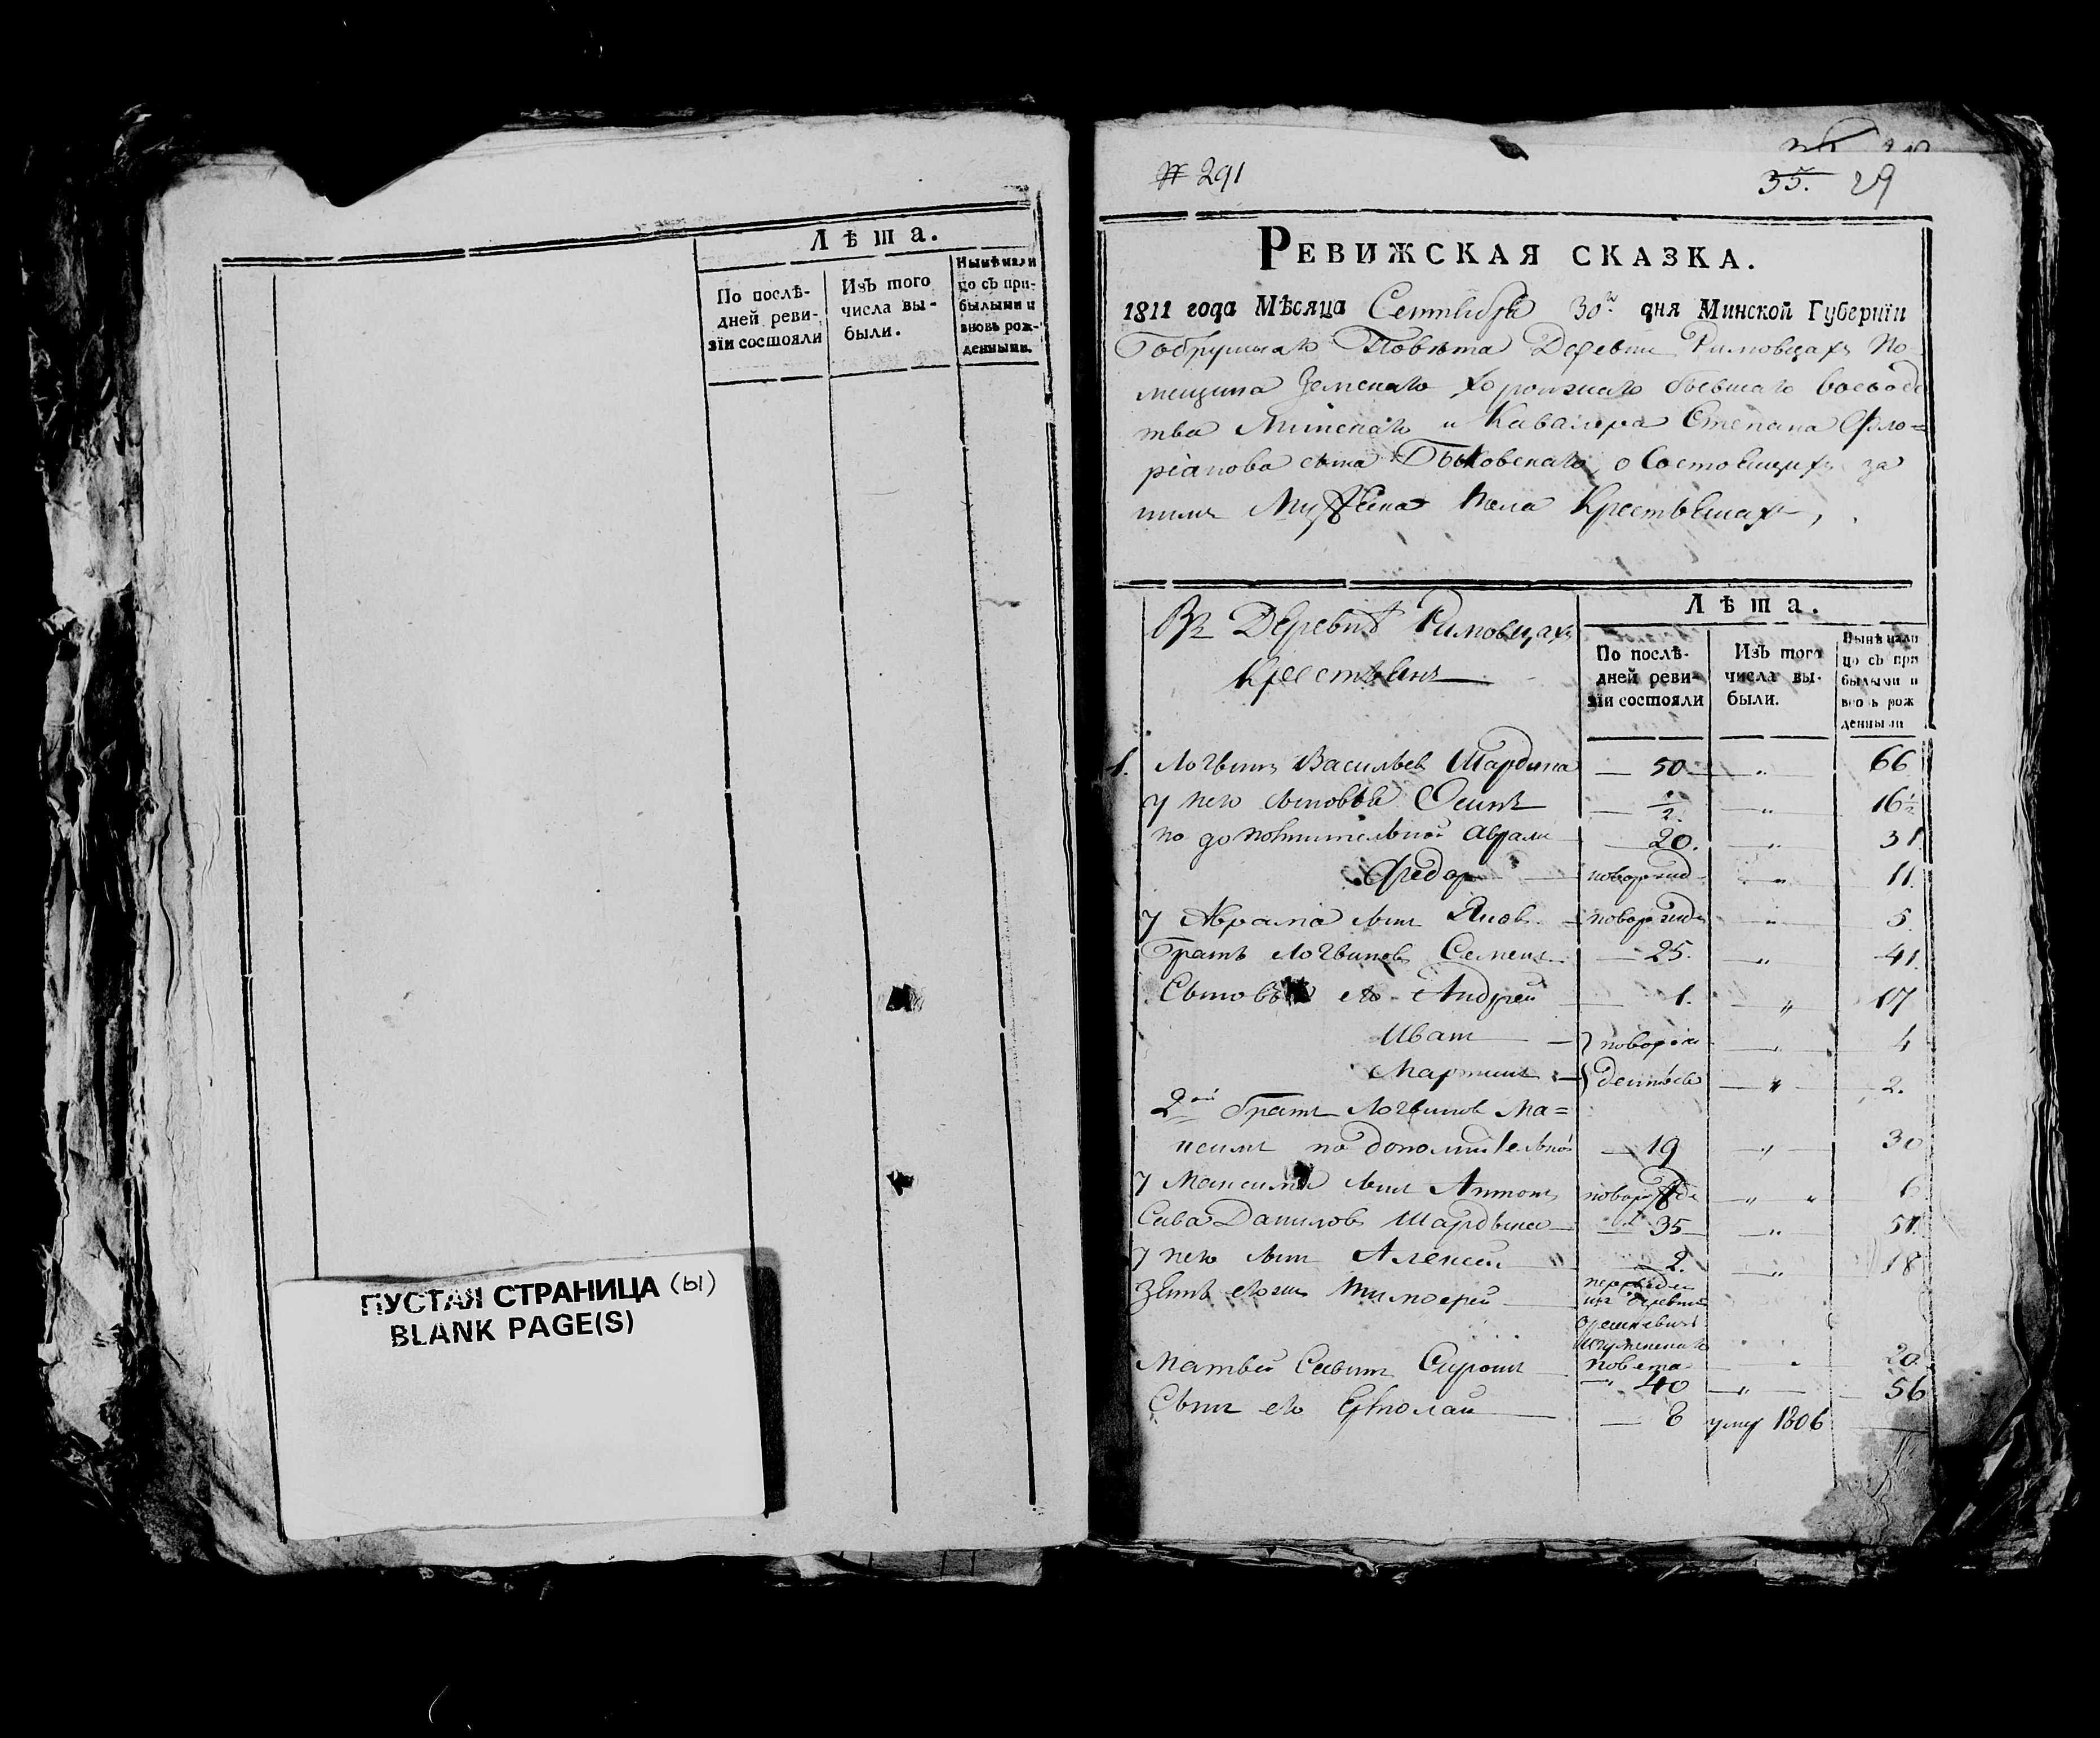 Лѣта.
По послѣ-
дней реви-
зіи состояли
Изъ того
числа вы-
были.
Нынѣ нали
цо съ при-
былыми и
вновь рож-
денными.
ПУСТАЯ СТРАНИЦА (ы)
BLANK PAGE(S)
# 291
35. 29
РЕВИЖСКАЯ СКАЗКА.
1811 года Мѣсяца Сентября 30го дня Минской Губерніи
Бобруцкаго Повѣта Деревни Римовцахъ По
мещика Земскаго Хоронжаго бывшаго воевод
тва Минскаго и Кавалера Степана Фло=
ріанова сына Быковскаго, о состоящихъ за
нимъ Мужеска пола Крестьянахъ,
Въ Деревнѣ Римовцахъ
Крестьянъ
Лѣта.
По послѣ-
дней реви-
зіи состояли
Изъ того
числа вы-
были.
Нынѣ нали
цо съ при
былыми и
вновь рож
денными
1. Логвинъ Васильевъ Шардыка — 50 — „ — 66
у него сыновья Осипъ — 1/2 — „ — 16 1/2
по дополнительной Аврам — 20. — „ — 31
Федор — новорожд — „ — 11.
у Аврама сын Яковъ — новорожд — „ — 5.
Братъ Логвиновъ Семенъ — 25. — „ — 41.
Сыновья его Андрей — 1. — „ — 17
Иван — новорож — „ — 4
Мартинъ — денные — „ — 2.
2ой братъ Логвиновъ Ма=
ксимъ по дополнительной — 19 — „ — 30
у Максима сын Антонъ новорожд — „
Сава Даниловъ Шардыка — 35 — „ — 51.
у него сын Алексей — 2. — „ — 18
Зять его Тимофей — переведен
из деревни
Игуменскаго
повета — „ — 20
Матвей Савинъ — 40 — „ — 56
Сынъ его Ермолай — 8 умер 1806